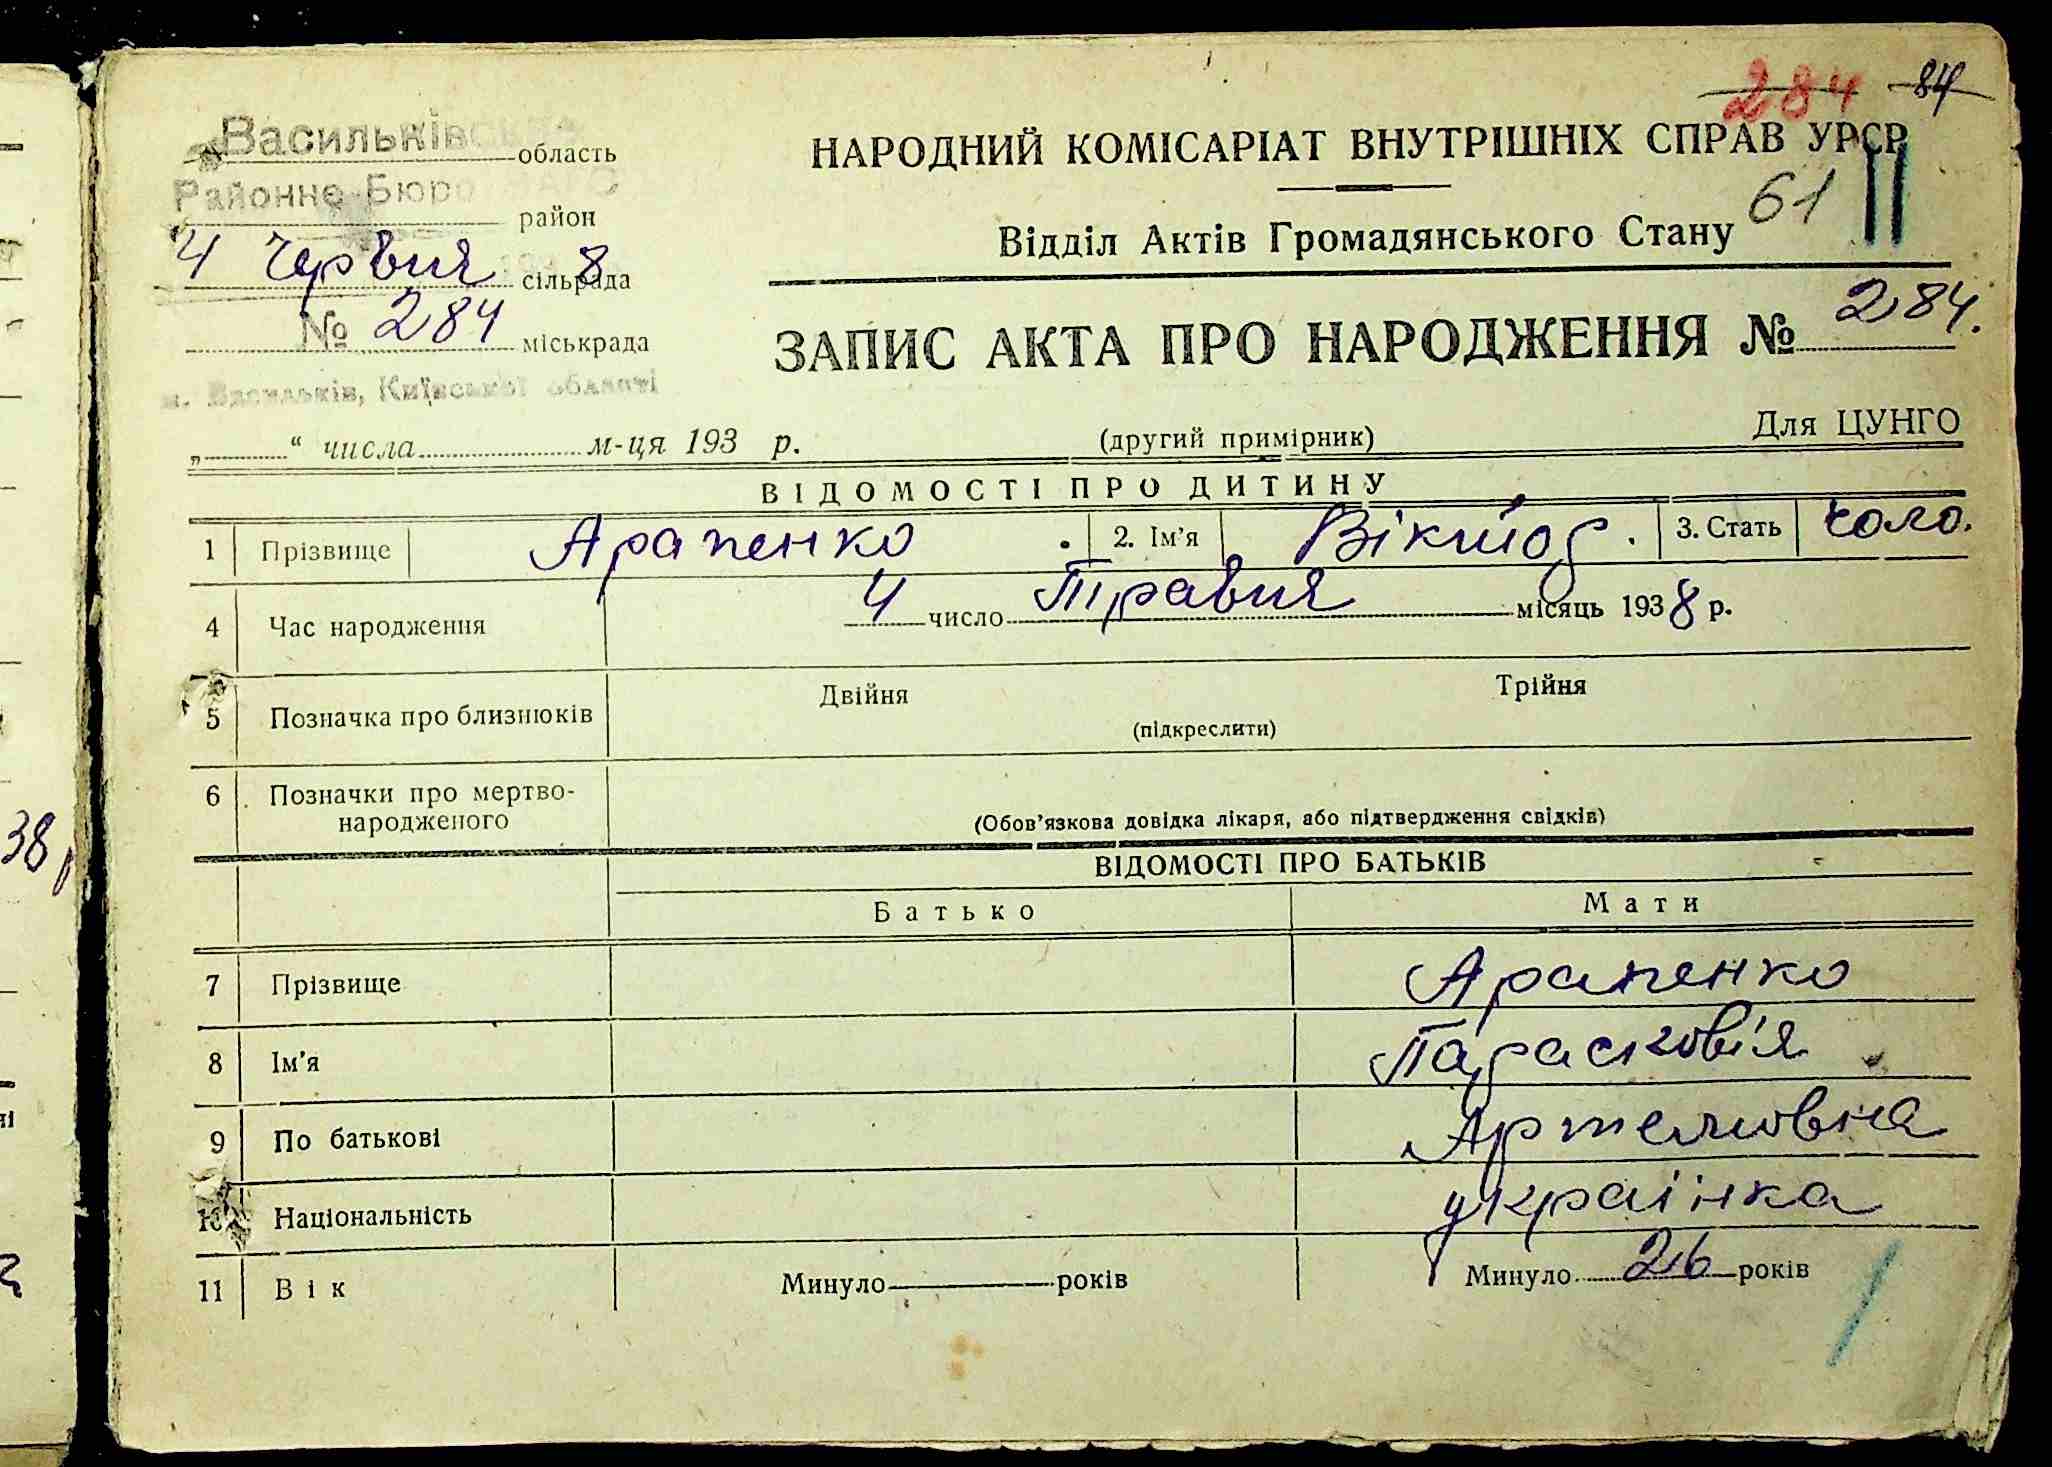 284 84
Васильківське область
Районне Бюро ЗАГС район
4 червня 8 сільрада
№ 284 міськрада
м. Васильків, Київської області
„ “ числа м-ця 193 р.
НАРОДНИЙ КОМІСАРІАТ ВНУТРІШНІХ СПРАВ УРСР
Відділ Актів Громадянського Стану 61
ЗАПИС АКТА ПРО НАРОДЖЕННЯ № 284.
(другий примірник) Для ЦУНГО
ВІДОМОСТІ ПРО ДИТИНУ
1 Прізвище Арапенко . 2. Ім'я Віктор . 3. Стать чоло.
4 Час народження 4 число Травня місяць 1938 р.
5 Позначка про близнюків Двійня Трійня
(підкреслити)
6 Позначки про мертво-
народженого (Обов'язкова довідка лікаря, або підтвердження свідків)
ВІДОМОСТІ ПРО БАТЬКІВ
Батько Мати
7 Прізвище Арапенко
8 Ім'я Парасковія
9 По батькові Артемовна
10 Національність українка
11 Вік Минуло років Минуло 26 років
38